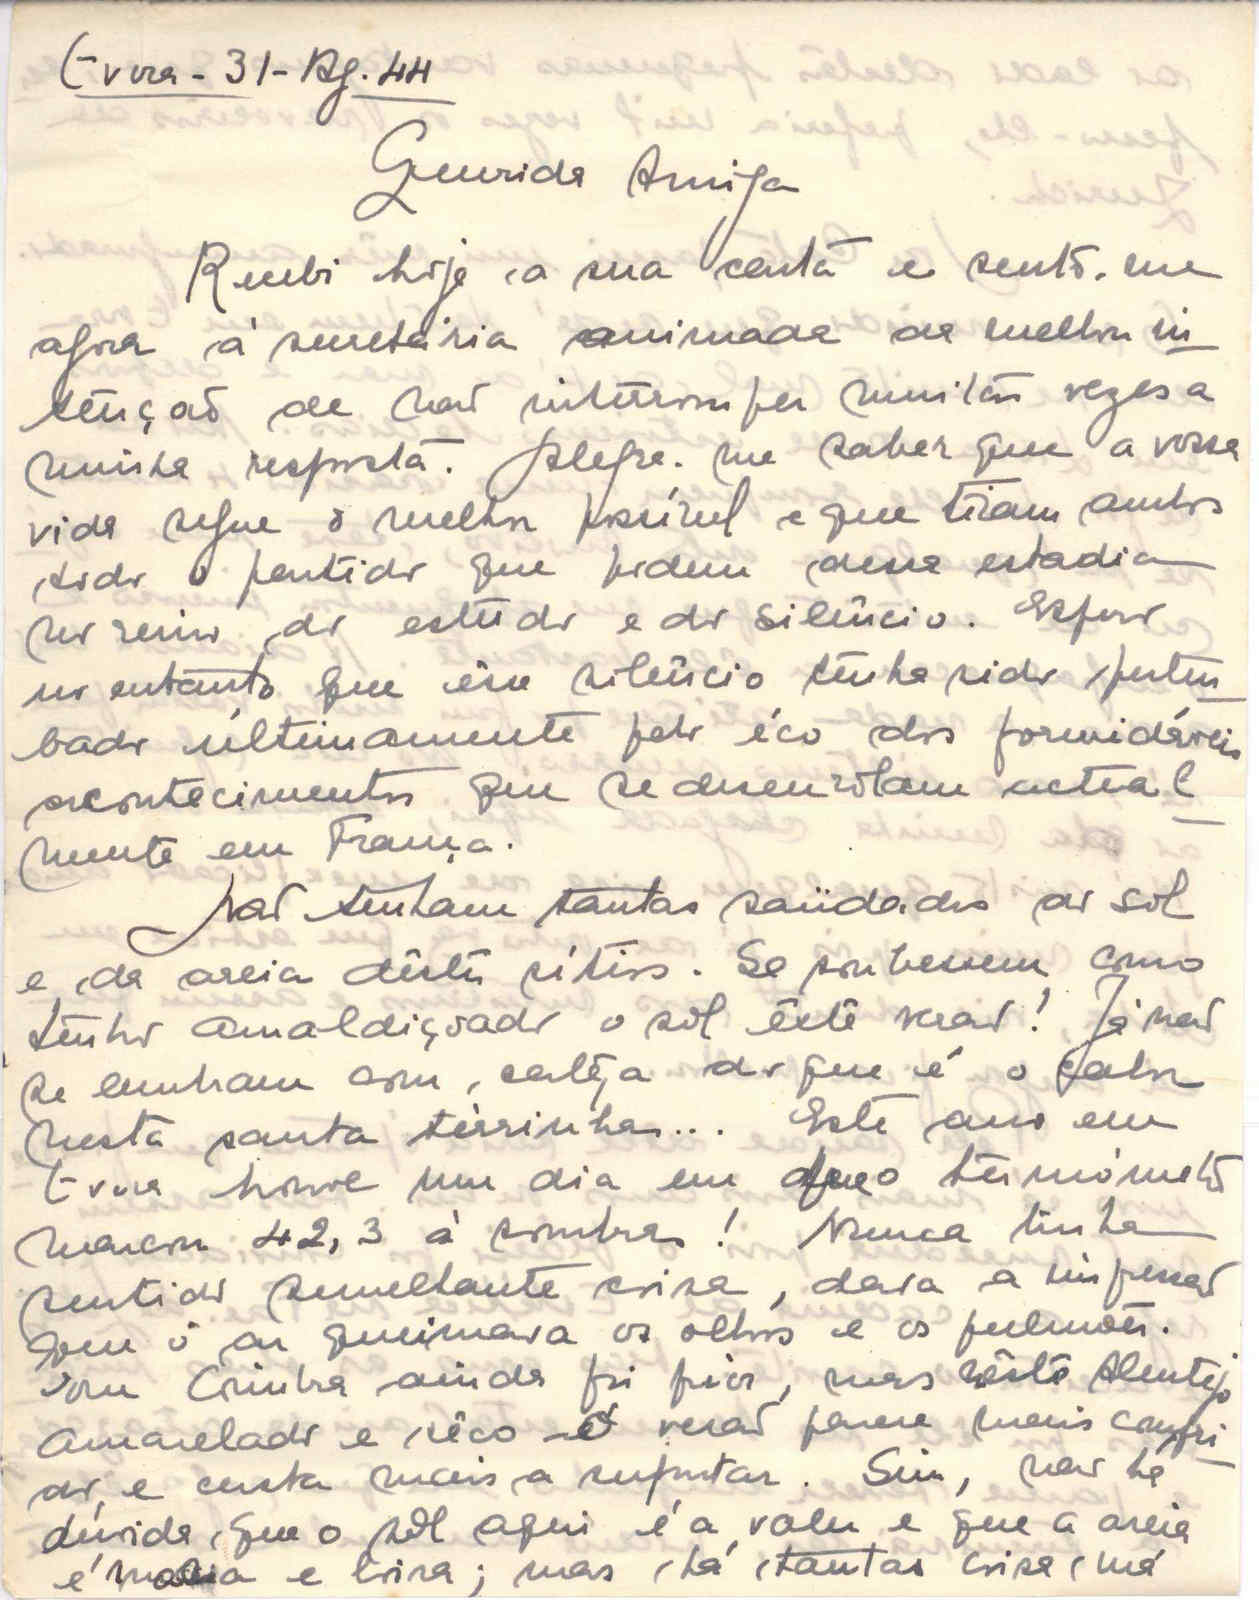 Evora - 31 - Ag. 44
Querida Amiga
Recebi hoje a sua carta e sento-me
agora à secretária animada da melhor in
tenção de não interromper muitas vezes a
minha resposta. Alegra-me saber que a vossa
vida segue o melhor possível e que tiram ambos
todo o partido que podem dessa estadia
no reino do estudo e do silêncio. Espero
no entanto que êsse silêncio tenha sido pertur
bado últimamente pelo éco dos formidáveis
acontecimentos que se desenrólam actual
mente em França.
Não tenham tantas saüdades do sol
e da areia dêstes sítios. Se soubessem como
tenho amaldiçoado o sol êste verão! Já não
se lembram com certeza do que é o calor
nesta santa terrinha... Este ano em
Evora houve um dia em que o termómetro
marcou 42,3 à sombra! Nunca tinha
sentido semelhante coisa, dava a impressão
que o ar queimava os olhos e os pulmões.
Em Coimbra ainda foi pior, mas nêste Alentejo
amarelado e sêco o verão parece mais compri
do e custa mais a suportar. Sim, não há
dúvida que o sol aqui é a valer e que a areia
é macia e loira; mas há tantas coisas má